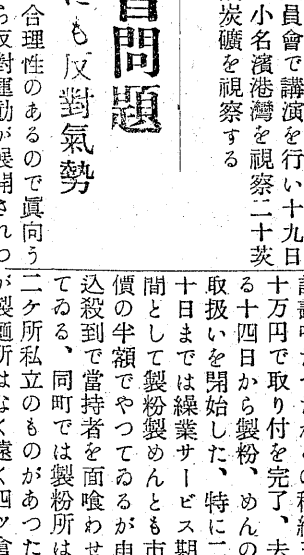 員會で講演を行い十九日
小名濱港灣を視察二十茨
炭礦を視察する
問題
にも反對氣勢
合理性のあるので眞向う
ら反對運動が展開されつ
十万円で取り付を完了、去
る十四日から製粉、めんの
取扱いを開始した、特に二
十日までは繰業サービス期
間として製粉製めんとも市
價の半額でやつてゐるが申
込殺到で當持者を面喰わせ
てゐる、同町では製粉所は
二ケ所私立のものがあつた
が製麺所はなく遠く四ッ倉